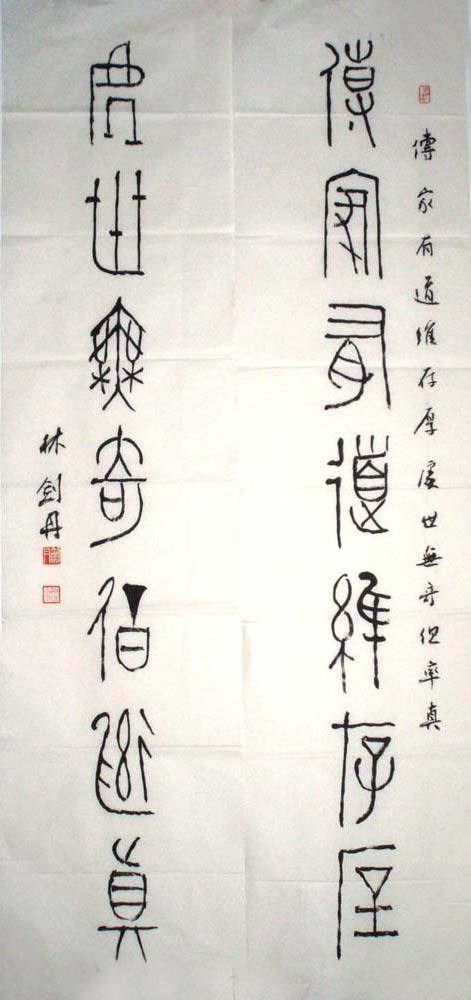 傳家有道維存厚處世無奇但率真
傳家有道維存厚
處世無奇但率真
林劍丹